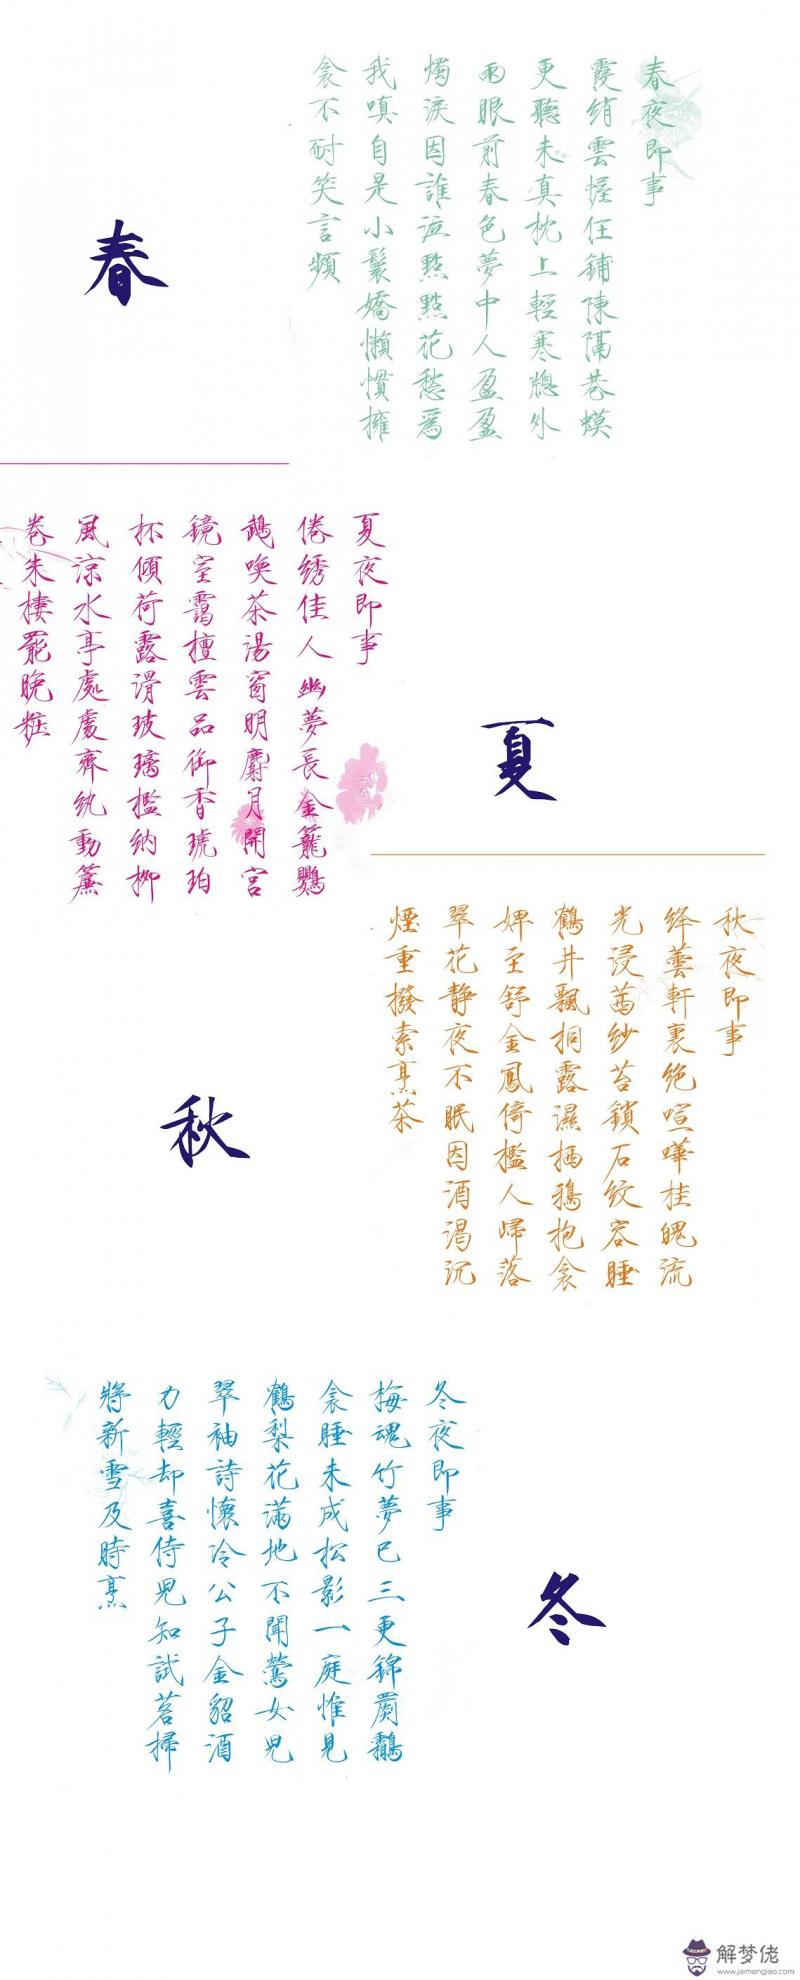 春
春夜即事
霞綃雲幄任鋪陳隔巷蟆
更聽未真枕上輕寒牕外
雨眼前春色夢中人盈盈
燭淚因誰泣點點花愁爲
我嗔自是小鬟嬌懶慣擁
衾不耐笑言頻
夏
夏夜即事
倦綉佳人幽夢長金籠鸚
鵡喚茶湯窗明麝月開宮
鏡室靄檀雲品御香琥珀
杯傾荷露滑玻璃檻納柳
風涼水亭處處齊紈動簾
卷朱樓罷晚粧
秋
秋夜即事
絳蕓軒裏絶喧嘩桂魄流
光浸茜紗苔鎖石紋容睡
鶴井飄桐露濕栖鴉抱衾
婢至舒金鳳倚檻人歸落
翠花静夜不眠因酒渴沉
煙重撥索烹茶
冬
冬夜即事
梅魂竹夢已三更錦罽鸘
衾睡未成松影一庭惟見
鶴梨花滿地不聞鶯女兒
翠袖詩懷冷公子金貂酒
力輕却喜侍兒知試茗掃
將新雪及時烹
解梦佬
www.jiemenglao.com